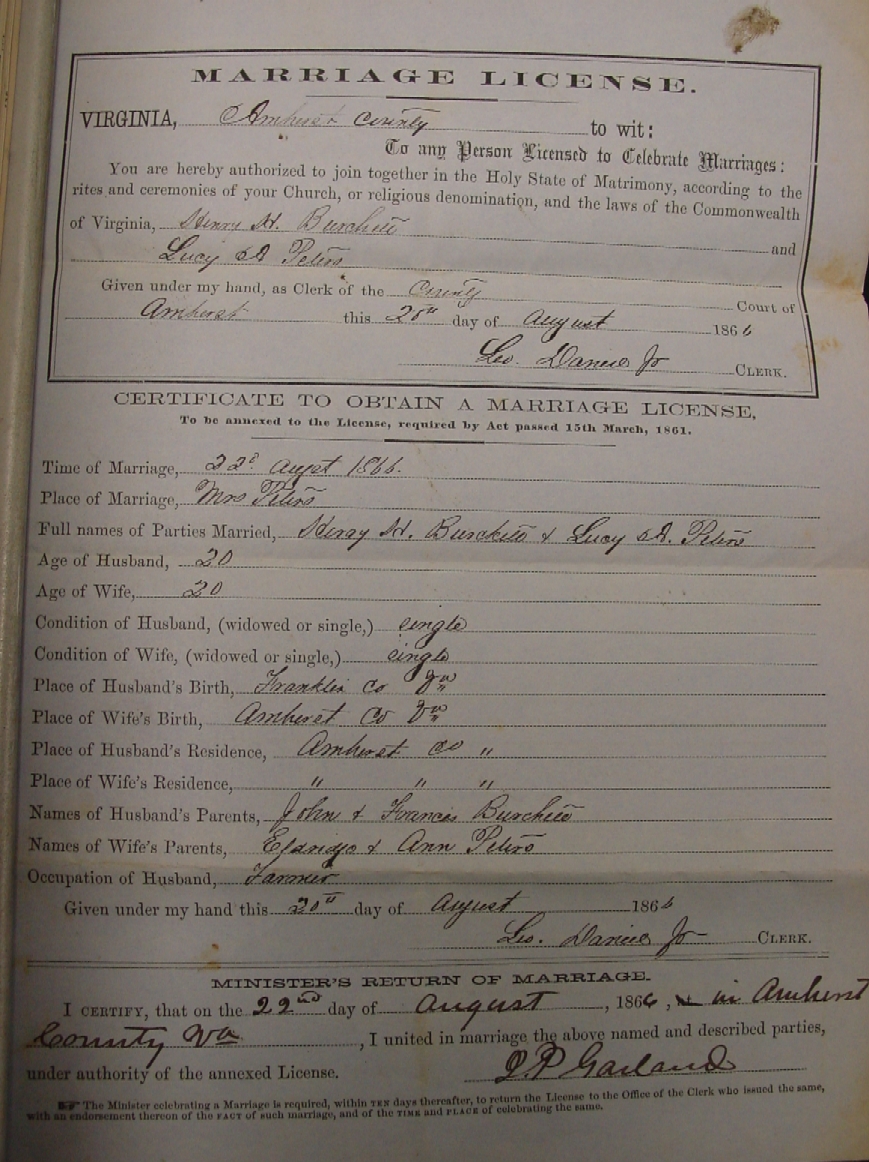 MARRIAGE LICENSE.
VIRGINIA, Amherst County to wit:
To any Person Licensed to Celebrate Marriages:
You are hereby authorized to join together in the Holy State of Matrimony, according to the
rites and ceremonies of your Church, or religious denomination, and the laws of the Commonwealth
of Virginia, Henry H. Burchett and
Lucy Peters
Given under my hand, as Clerk of the County Court of
Amherst this 20th day of August 1866
Leo. Daniel Jr CLERK.
CERTIFICATE TO OBTAIN A MARRIAGE LICENSE,
To be annexed to the License, required by Act passed 15th March, 1861.
Time of Marriage, 22d Augst 1866.
Place of Marriage, Mrs Peters
Full names of Parties Married, Henry H. Burchett & Lucy Peters
Age of Husband, 20
Age of Wife, 20
Condition of Husband, (widowed or single,) single
Condition of Wife, (widowed or single,) single
Place of Husband's Birth, Franklin Co Va
Place of Wife's Birth, Amherst Co Va
Place of Husband's Residence, Amherst Co "
Place of Wife's Residence, " " "
Names of Husband's Parents, John & Frances Burchett
Names of Wife's Parents, & Ann Peters
Occupation of Husband, Farmer
Given under my hand this 20th day of August 1866
Leo. Daniel Jr CLERK.
MINISTER'S RETURN OF MARRIAGE.
I CERTIFY, that on the 22nd day of August, 1866, in Amherst
County Va, I united in marriage the above named and described parties,
under authority of the annexed License. Garland
☞ The Minister celebrating a Marriage is required, within TEN days thereafter, to return the License to the Office of the Clerk who issued the same,
with an endorsement thereon of the FACT of such marriage, and of the TIME and PLACE of celebrating the same.